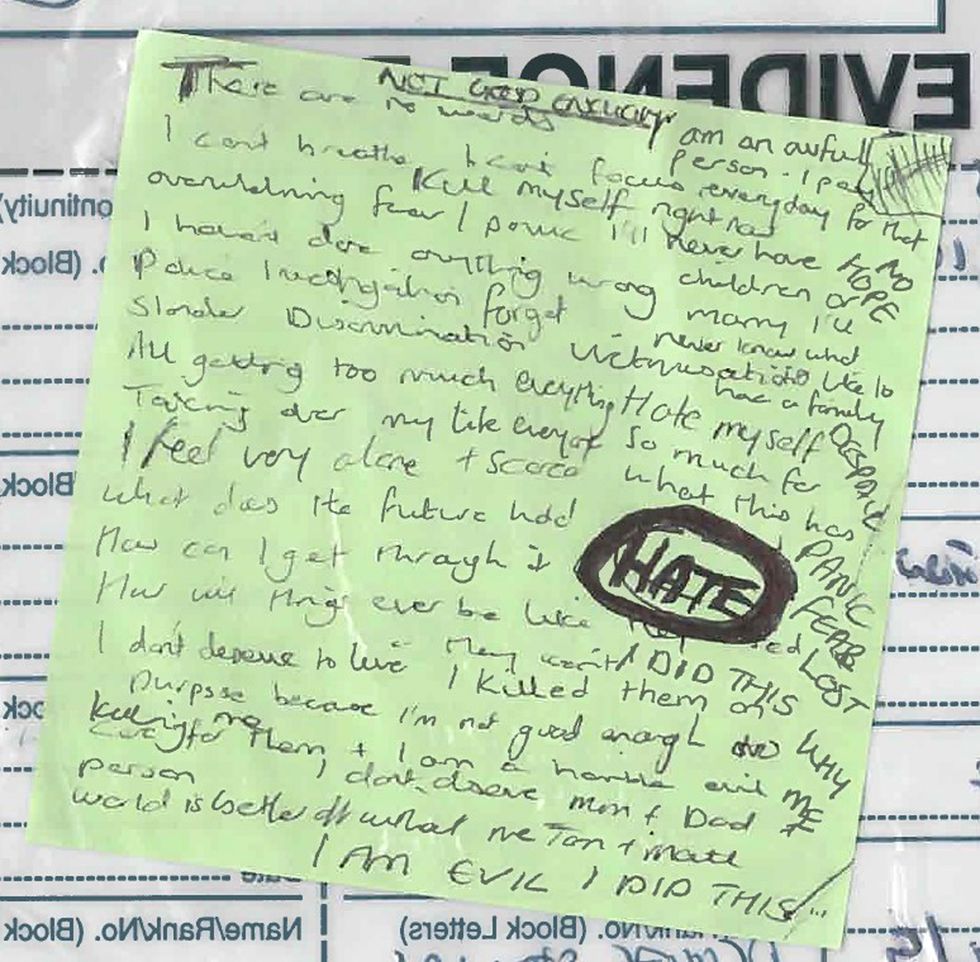 EVIDENCE
NOT GOOD ENOUGH
There are no words
I am an awful person. I pay
I can't breathe I can't focus everyday for that
Kill myself right now
overwhelming fear I panic I'll never have NO
HOPE
I haven't done anything wrong children or
Police Investigation forget marry I'll
never know what
Slander Discrimination Victimisation its like to
have a family
All getting too much everything Hate myself DESPAIR
Taking over my life everyday so much for
I feel very alone + scared what this has
what does the future hold
PANIC
How can I get through it HATE
FEAR
How will things ever be like
LOST
I don't deserve to live They went I DID THIS
I killed them on
purpose because I'm not good enough to WHY
ME
care for them + I am a horrible evil
killing me
person I don't deserve mum + Dad
world is better off without me Tom + matt
I AM EVIL I DID THIS
Continuity)
No. (Block
(Block
Date
Name/Rank/No. (Block
Rank/No. (Block Letters)